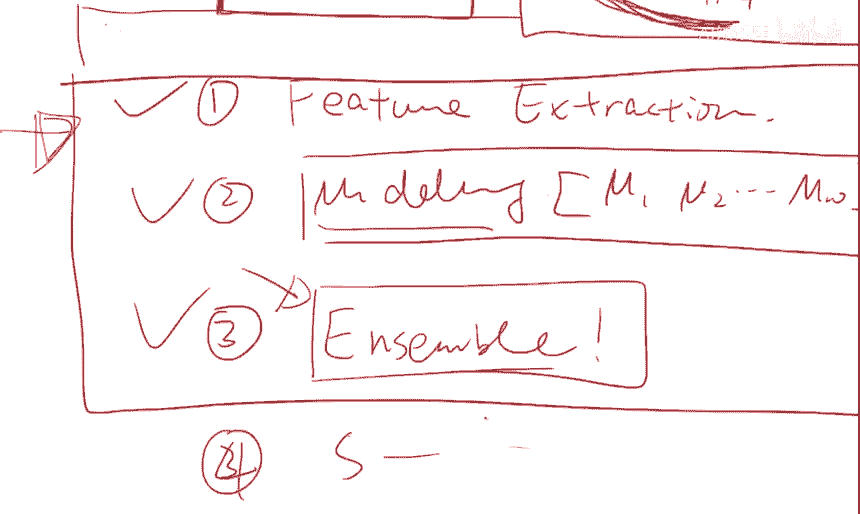 ① Feature Extraction.
② Modeling [ M₁ M₂ ... M₁₀
③ Ensemble!
④ S —